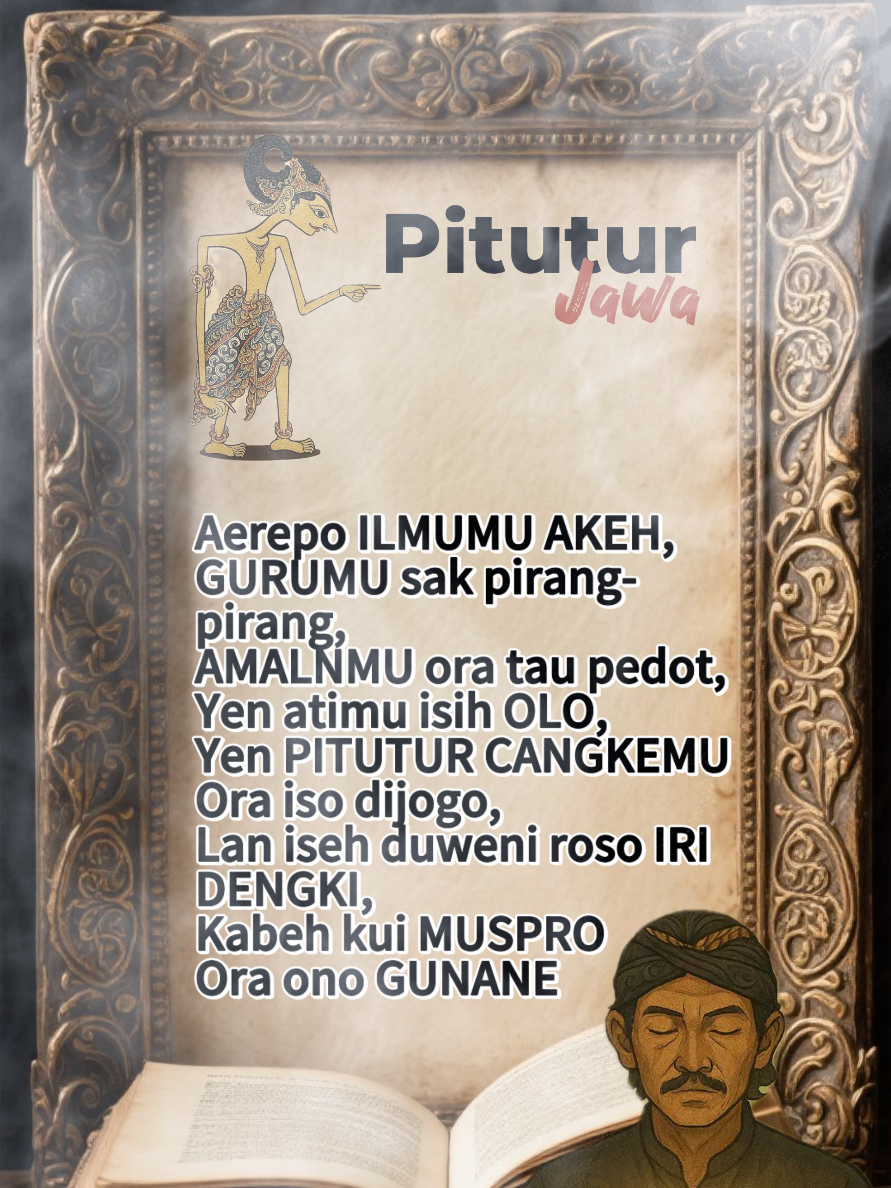 Pitutur
Jawa
Aerepo ILMUMU AKEH,
GURUMU sak pirang-
pirang,
AMALNMU ora tau pedot,
Yen atimu isih OLO,
Yen PITUTUR CANGKEMU
Ora iso dijogo,
Lan iseh duweni roso IRI
DENGKI,
Kabeh kui MUSPRO
Ora ono GUNANE